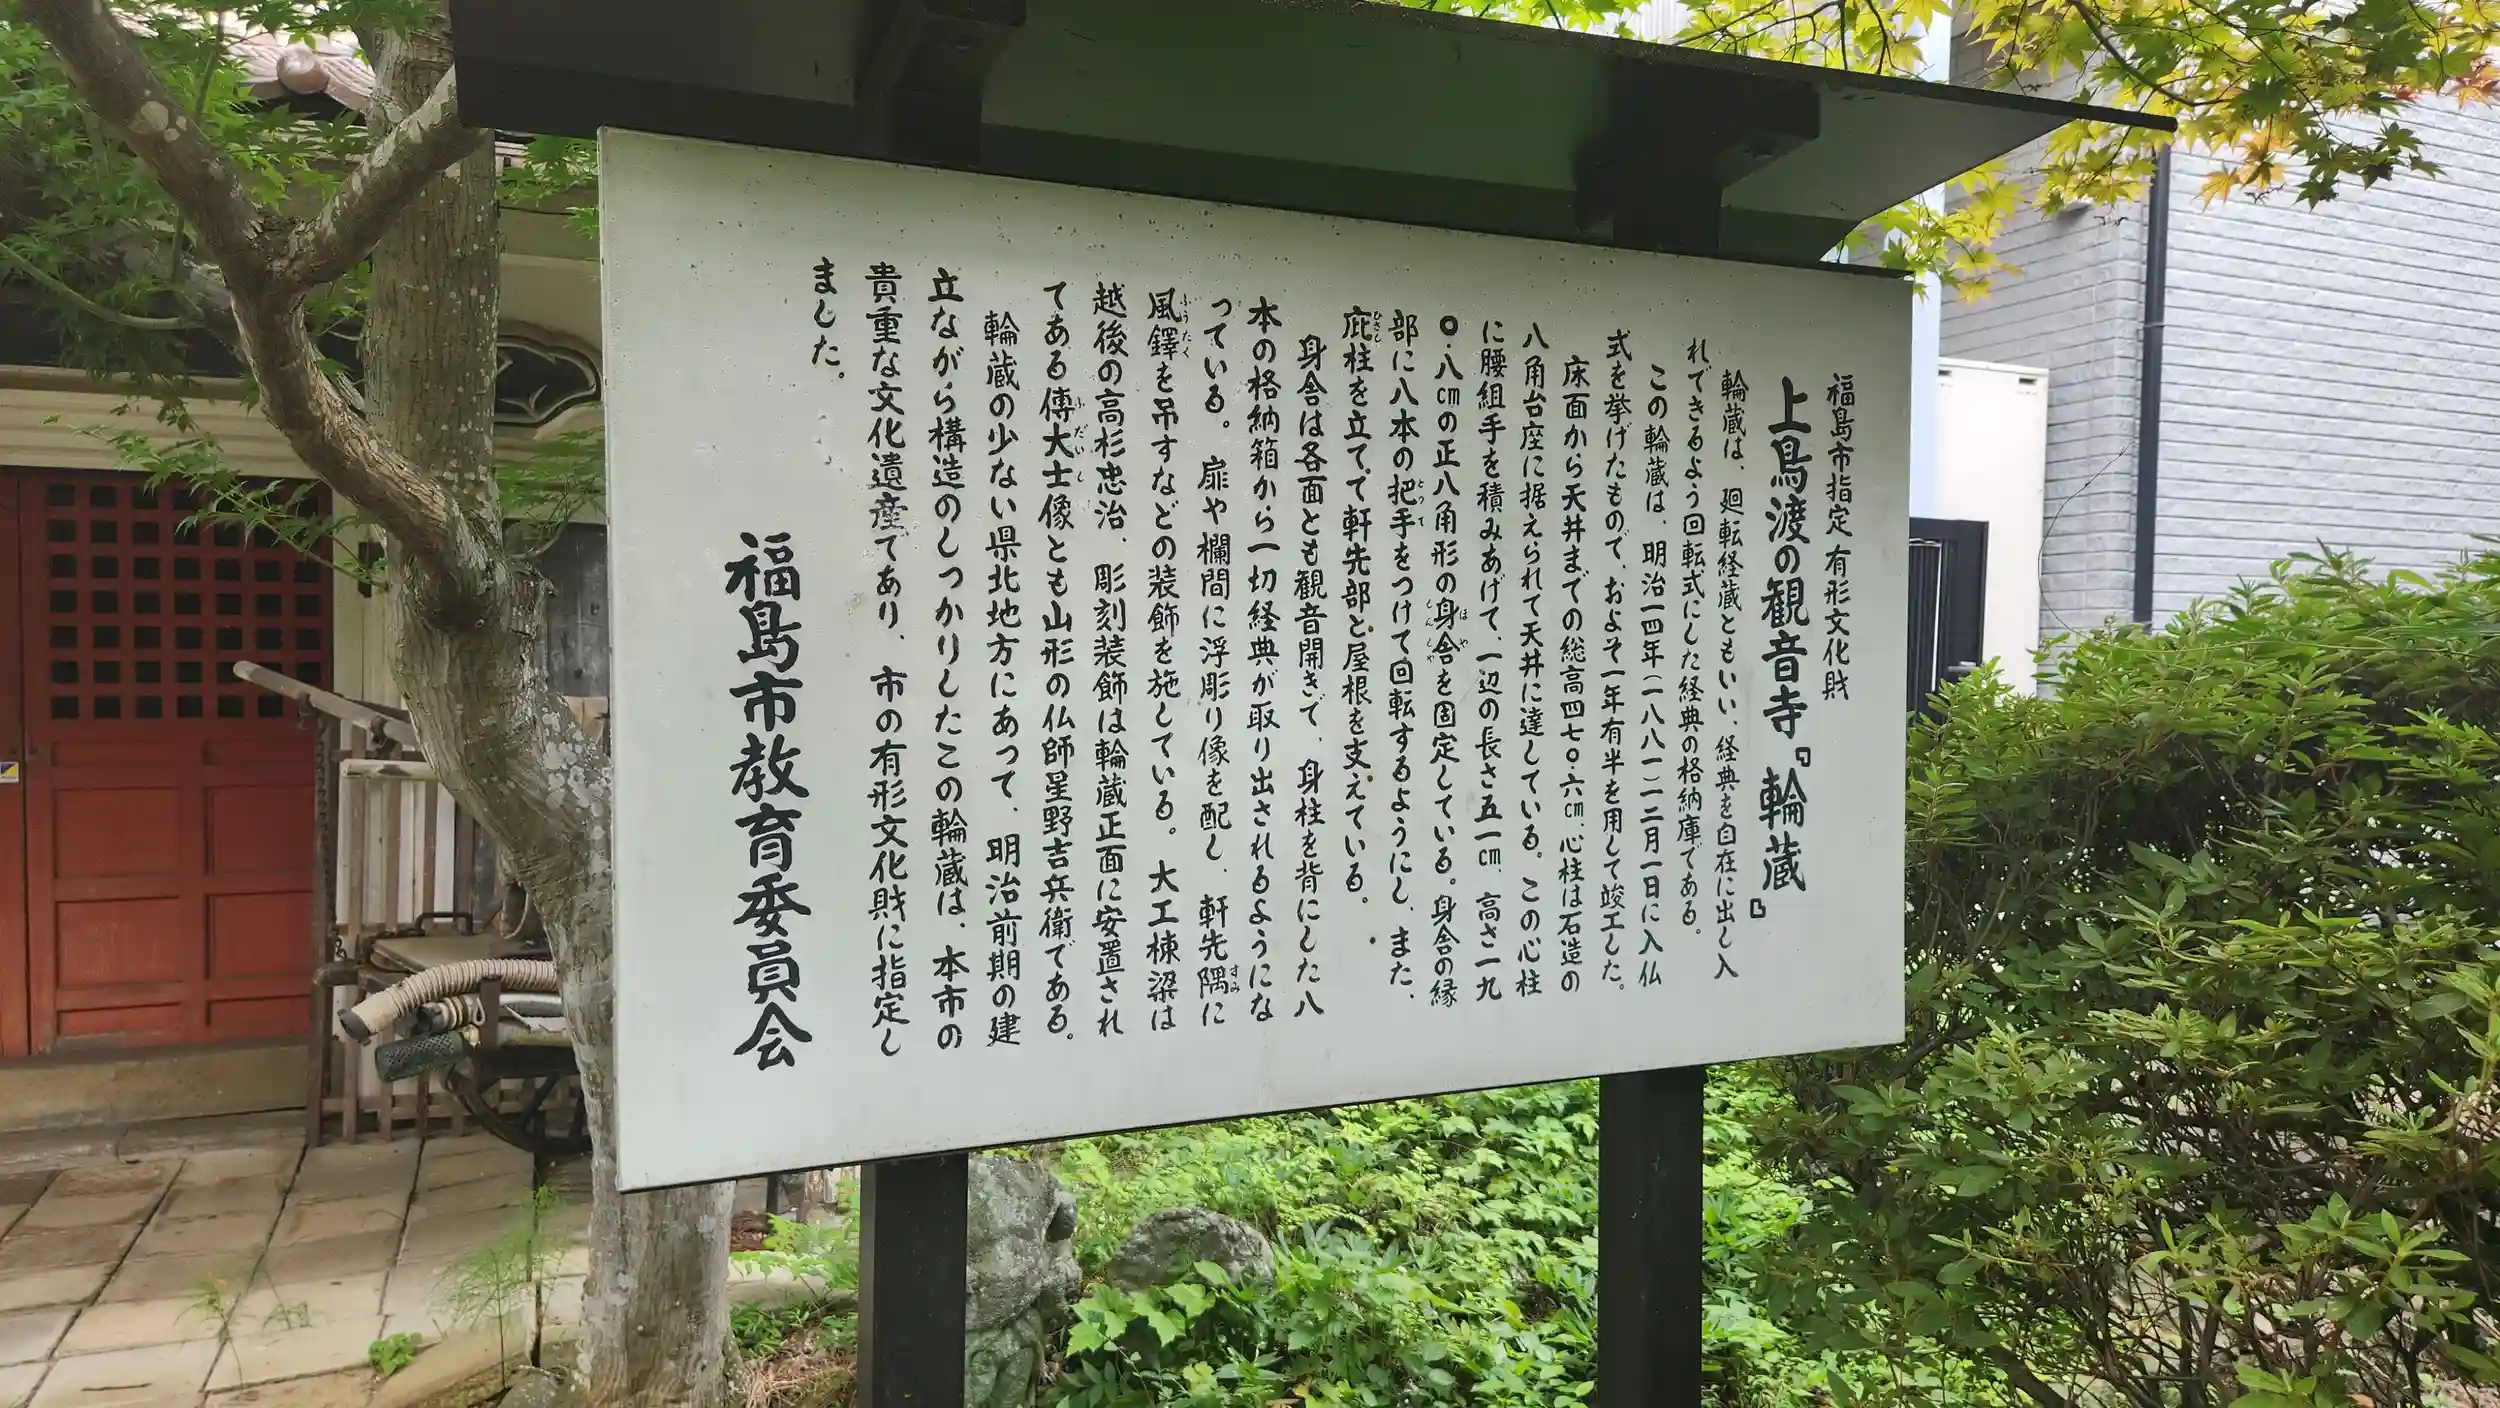 福島市指定 有形文化財
上鳥渡の観音寺『輪蔵』
輪蔵は、廻転経蔵ともいい、経典を自在に出し入
れできるよう回転式にした経典の格納庫である。
この輪蔵は、明治一四年(一八八一)三月一日に入仏
式を挙げたもので、およそ一年有半を用して竣工した。
床面から天井までの総高四七〇・六㎝、心柱は石造の
八角台座に据えられて天井に達している。この心柱
に腰組手を積みあげて、一辺の長さ五一㎝、高さ一九
〇・八㎝の正八角形の身舎を固定している。身舎の縁
部に八本の把手をつけて回転するようにし、また、
庇柱を立てて軒先部と屋根を支えている。
身舎は各面とも観音開きで、身柱を背にした八
本の格納箱から一切経典が取り出されるようにな
っている。扉や欄間に浮彫り像を配し、軒先隅に
風鐸を吊すなどの装飾を施している。大工棟梁は
越後の高杉忠治、彫刻装飾は輪蔵正面に安置され
てある傅大士像とも山形の仏師星野吉兵衛である。
輪蔵の少ない県北地方にあって、明治前期の建
立ながら構造のしっかりしたこの輪蔵は、本市の
貴重な文化遺産であり、市の有形文化財に指定し
ました。
福島市教育委員会